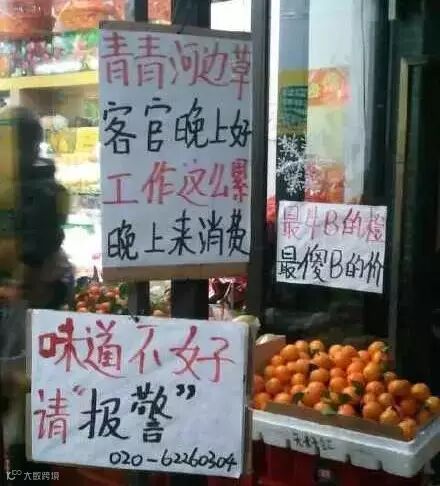 青青河边草
客官晚上好
工作这么累
晚上来消费
最牛B的橙
最傻B的价
味道不好
请“报警”
020-62260304
大数跨境